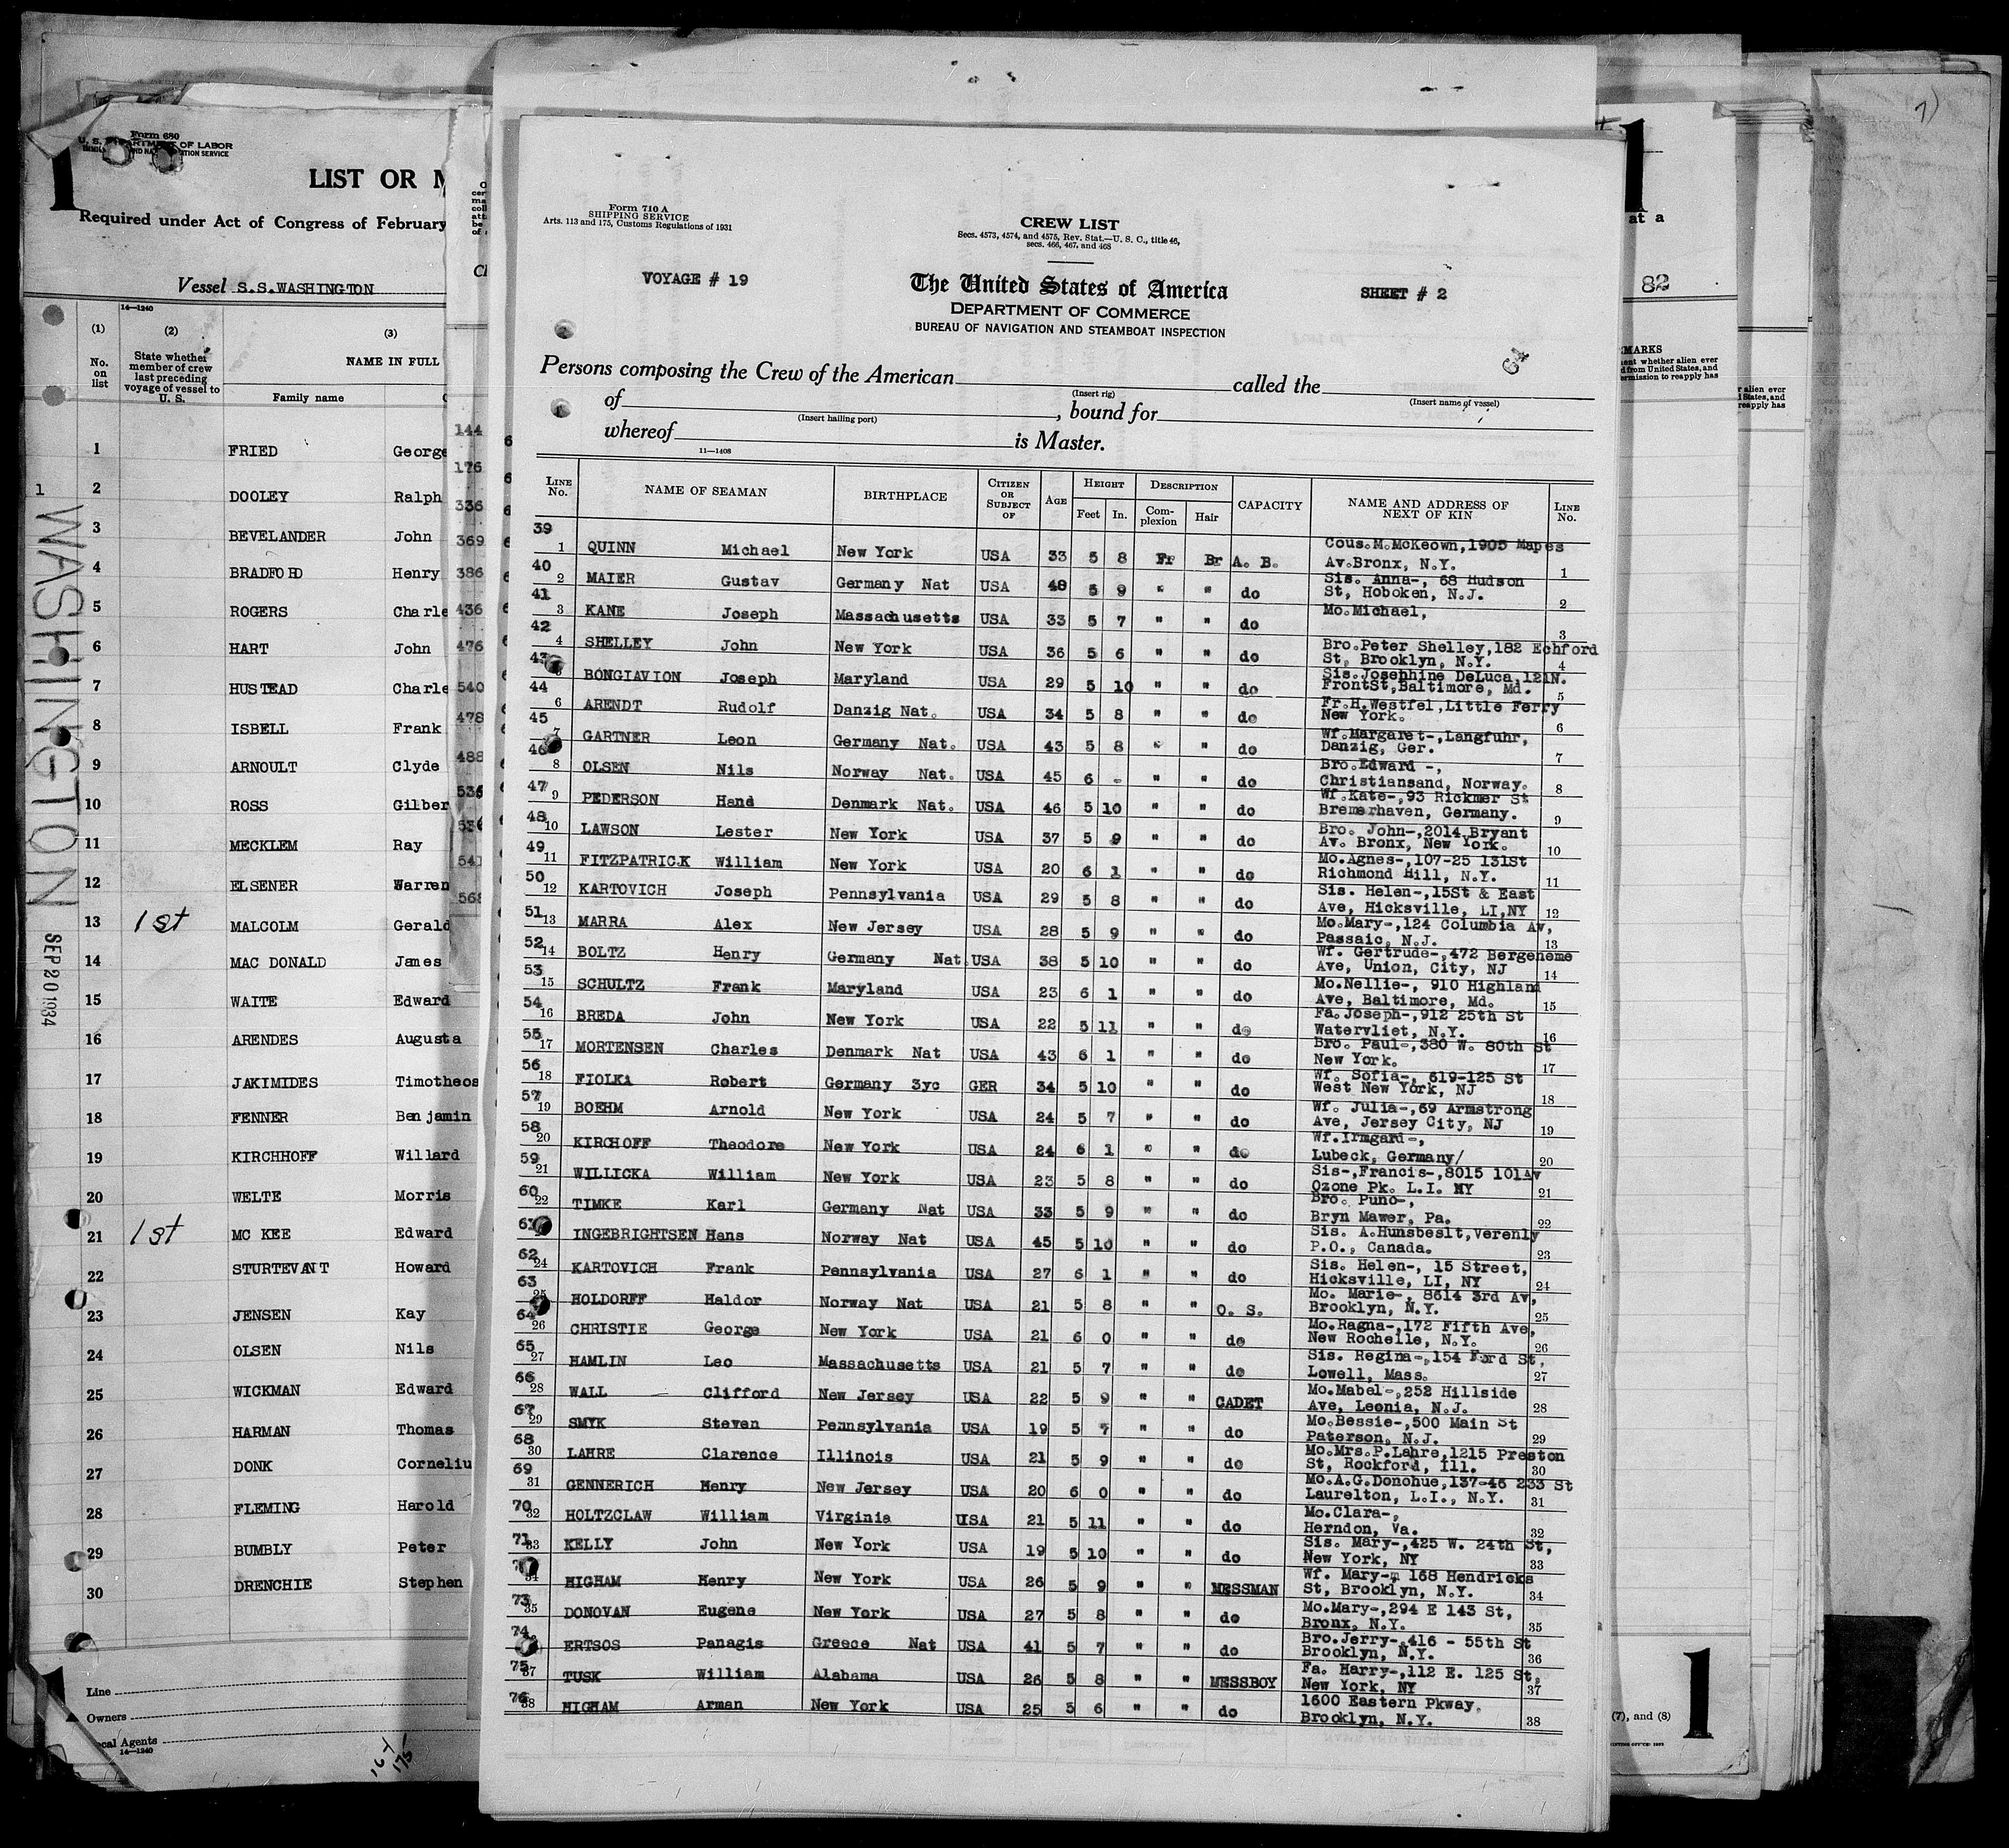 Form 680
U. S. DEPARTMENT OF LABOR
LIST OR M
Required under Act of Congress of February
Vessel S.S.WASHINGTON
14—1240
(1) (2) (3)
No. on list
State whether member of crew last preceding voyage of vessel to U. S.
NAME IN FULL
Family name
1 FRIED George
2 DOOLEY Ralph
3 BEVELANDER John
4 BRADFORD Henry
5 ROGERS Charle
6 HART John
7 HUSTEAD Charle
8 ISBELL Frank
9 ARNOULT Clyde
10 ROSS Gilber
11 MECKLEM Ray
12 ELSENER Warren
13 1st MALCOLM Gerald
14 MAC DONALD James
15 WAITE Edward
16 ARENDES Augusta
17 JAKIMIDES Timotheos
18 FENNER Benjamin
19 KIRCHHOFF Willard
20 WELTE Morris
21 1st MC KEE Edward
22 STURTEVANT Howard
23 JENSEN Kay
24 OLSEN Nils
25 WICKMAN Edward
26 HARMAN Thomas
27 DONK Corneliu
28 FLEMING Harold
29 BUMBLY Peter
30 DRENCHIE Stephen
Line
Owners
cal Agents
14—1240
167
175
1
WASHINGTON
SEP 20 1934
144
176
336
369
386
436
476
540
478
488
536
536
541
568
Form 710 A
SHIPPING SERVICE
Arts. 113 and 175, Customs Regulations of 1931
CREW LIST
Secs. 4573, 4574, and 4575, Rev. Stat.—U. S. C., title 46,
secs. 466, 467, and 468
VOYAGE # 19
The United States of America
SHEET # 2
DEPARTMENT OF COMMERCE
BUREAU OF NAVIGATION AND STEAMBOAT INSPECTION
Persons composing the Crew of the American called the
(Insert rig) (Insert name of vessel)
of , bound for
(Insert hailing port)
whereof is Master.
11—1408
LINE No. NAME OF SEAMAN BIRTHPLACE CITIZEN OR SUBJECT OF AGE HEIGHT Feet In. DESCRIPTION Complexion Hair CAPACITY NAME AND ADDRESS OF NEXT OF KIN LINE No.
39 1 QUINN Michael New York USA 33 5 8 Fr Br A. B. Cous.M.McKeown,1905 Mapes
Av.Bronx, N.Y. 1
40 2 MAIER Gustav Germany Nat USA 48 5 9 " " do Sis. Anna-, 68 Hudson
St, Hoboken, N.J. 2
41 3 KANE Joseph Massachusetts USA 33 5 7 " " do Mo.Michael, 3
42 4 SHELLEY John New York USA 36 5 6 " " do Bro.Peter Shelley,182 Echford
St, Brooklyn, N.Y. 4
43 5 BONGIAVION Joseph Maryland USA 29 5 10 " " do Sis.Josephine DeLuca,121N.
FrontSt,Baltimore, Md. 5
44 6 ARENDT Rudolf Danzig Nat. USA 34 5 8 " " do Fr.H.Westfel,Little Ferry
New York. 6
45 7 GARTNER Leon Germany Nat. USA 43 5 8 " " do Wf.Margaret-,Langfuhr,
Danzig, Ger. 7
46 8 OLSEN Nils Norway Nat. USA 45 6 - " " do Bro.Edward -,
Christiansand, Norway. 8
47 9 PEDERSON Hand Denmark Nat. USA 46 5 10 " " do Wf.Kate-,93 Rickmer St
Bremerhaven, Germany. 9
48 10 LAWSON Lester New York USA 37 5 9 " " do Bro. John-,2014 Bryant
Av. Bronx, New York. 10
49 11 FITZPATRICK William New York USA 20 6 1 " " do Mo.Agnes-,107-25 131St
Richmond Hill, N.Y. 11
50 12 KARTOVICH Joseph Pennsylvania USA 29 5 8 " " do Sis. Helen-,15St & East
Ave, Hicksville, LI,NY 12
51 13 MARRA Alex New Jersey USA 28 5 9 " " do Mo.Mary-,124 Columbia Av,
Passaic, N.J. 13
52 14 BOLTZ Henry Germany Nat USA 38 5 10 " " do Wf. Gertrude-,472 Bergeneme
Ave, Union, City, NJ 14
53 15 SCHULTZ Frank Maryland USA 23 6 1 " " do Mo.Nellie-, 910 Highland
Ave, Baltimore, Md. 15
54 16 BREDA John New York USA 22 5 11 " " do Fa.Joseph-,912 25th St
Watervliet, N.Y. 16
55 17 MORTENSEN Charles Denmark Nat USA 43 6 1 " " do Bro. Paul-,380 W. 80th St
New York. 17
56 18 FIOLKA Robert Germany 3yc GER 34 5 10 " " do Wf. Sofia-, 619-125 St
West New York, NJ 18
57 19 BOEHM Arnold New York USA 24 5 7 " " do Wf. Julia-,69 Armstrong
Ave, Jersey City, NJ 19
58 20 KIRCHOFF Theodore New York USA 24 6 1 " " do Wf.Irmgard-,
Lubeck, Germany/ 20
59 21 WILLICKA William New York USA 23 5 8 " " do Sis-,Francis-,8015 101Av
Ozone Pk. L.I. NY 21
60 22 TIMKE Karl Germany Nat USA 33 5 9 " " do Bro. Puno-,
Bryn Mawer, Pa. 22
61 INGEBRIGHTSEN Hans Norway Nat USA 45 5 10 " " do Sis. A.Hunsbeslt,Verenly
P.O., Canada. 23
62 24 KARTOVICH Frank Pennsylvania USA 27 6 1 " " do Sis. Helen-, 15 Street,
Hicksville, LI, NY 24
63 25 HOLDORFF Haldor Norway Nat USA 21 5 8 " " O. S. Mo. Marie-, 8614 3rd Av,
Brooklyn, N.Y. 25
64 26 CHRISTIE George New York USA 21 6 0 " " do Mo.Ragna-,172 Fifth Ave,
New Rochelle, N.Y. 26
65 27 HAMLIN Leo Massachusetts USA 21 5 7 " " do Sis. Regina-,154 Ford St,
Lowell, Mass. 27
66 28 WALL Clifford New Jersey USA 22 5 9 " " CADET Mo.Mabel-,252 Hillside
Ave, Leonia, N.J. 28
67 29 SMYK Steven Pennsylvania USA 19 5 7 " " do Mo.Bessie-,500 Main St
Paterson, N.J. 29
68 30 LAHRE Clarence Illinois USA 21 5 9 " " do Mo.Mrs.P.Lahre,1215 Preston
St, Rockford, Ill. 30
69 31 GENNERICH Henry New Jersey USA 20 6 0 " " do Mo.A.G.Donohue,137-46 233 St
Laurelton, L.I., N.Y. 31
70 32 HOLTZCLAW William Virginia USA 21 5 11 " " do Mo.Clara-,
Herndon, Va. 32
71 33 KELLY John New York USA 19 5 10 " " do Sis. Mary-,425 W. 24th St,
New York, NY 33
34 HIGHAM Henry New York USA 26 5 9 " " MESSMAN Wf. Mary-m 168 Hendricks
St, Brooklyn, N.Y. 34
73 35 DONOVAN Eugene New York USA 27 5 8 " " do Mo.Mary-,294 E 143 St,
Bronx, N.Y. 35
74 ERTSOS Panagis Greece Nat USA 41 5 7 " " do Bro.Jerry-,416 - 55th St
Brooklyn, N.Y. 36
75 37 TUSK William Alabama USA 26 5 8 " " MESSBOY Fa. Harry-,112 E. 125 St,
New York, NY 37
76 38 HIGHAM Arman New York USA 25 5 6 " " do 1600 Eastern Pkway,
Brooklyn, N.Y. 38
1
at a
82
MARKS
ent whether alien ever
d from United States, and
ermission to reapply has
r alien ever
l States, and
reapply has
(7), and (8)
1